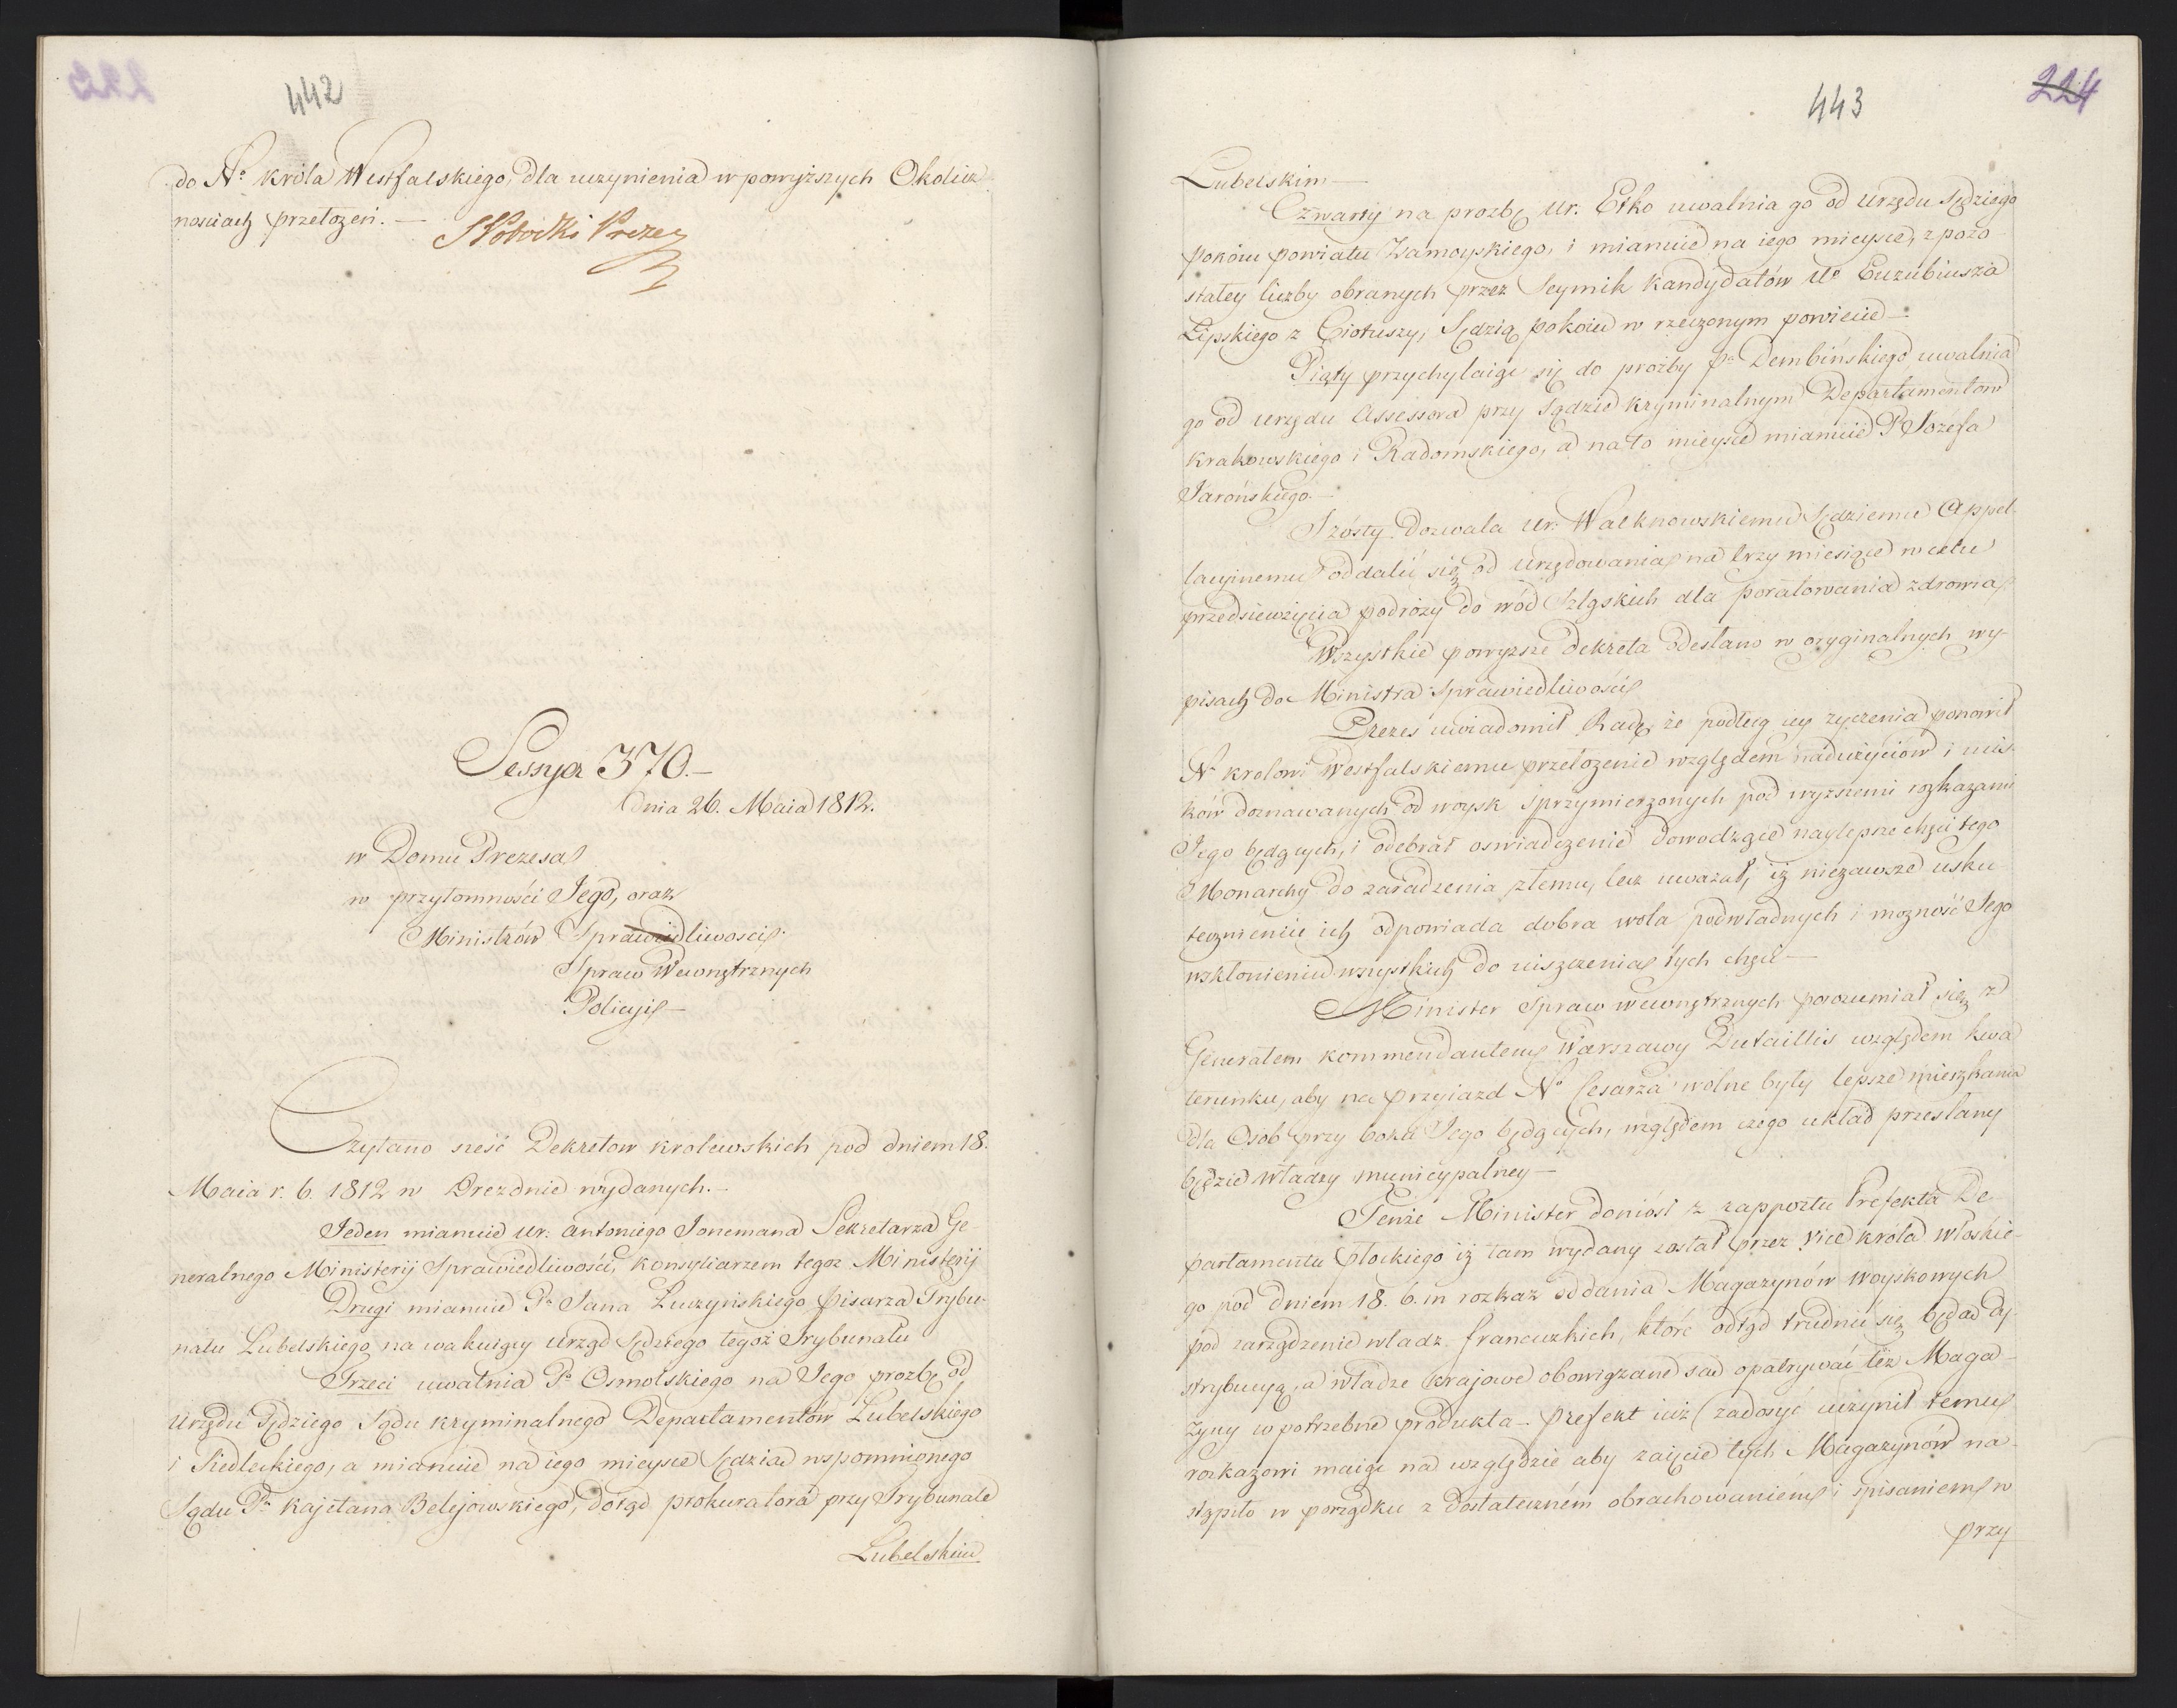 442
do No króla Westfalskiego, dla uczynienia w powyższych Okolicz
nosciach przełożeń. —
SPotocki Prezes
Sessya 370. —
dnia 26. Maia 1812.
w Domu Prezesa
w przytomności Jego, oraz
Ministrów Sprawiedliwosci.
Spraw Wewnętrznych
Policyi —
Czytano sześć Dekretow krolewskich pod dniem 18.
Maia r. b. 1812 w Dreznie wydanych. —
Jeden mianuie Ur: Antoniego Jonemana Sekretarza Ge-
neralnego Ministerij Sprawiedliwości, konsyliarzem tegoz Ministerij
Drugi mianuie Pa Jana Łuczyńskiego Pisarza Trybu-
nału Lubelskiego na wakuiący Urząd Sędziego tegoż Trybunału
Trzeci uwalnia Po Osmolskiego na Jego prozbę od
Urzędu Sędziego Sądu kryminalnego Departamentów Lubelskiego
i Siedleckiego, a mianuie na iego mieysce Sędzią wspomnionego
Sądu Pa Kajetana Belejowskiego, dotąd prokuratora przy Trybunale
Lubelskim
443
224
Lubelskim —
Czwarty na prozbę Ur. Etko uwalnia go od Urzędu Sędziego
pokoiu powiatu Zamoyskiego, i mianuie na iego mieysce, z pozo
stałey liczby obranych przez Seymik kandydatów Uo Euzubiusza
Lipskiego z Ciotuszy, Sędzią pokoiu w rzeczonym powiecie —
Piąty przychylaiąc się do prozby Pa Dembińskiego uwalnia
go od urzędu Assessora przy Sądzie kryminalnym Departamentow
krakowskiego i Radomskiego, a na to mieysce mianuie Pa Józefa
Jarońskiego. —
Szósty Dozwala Ur: Walknowskiemu Sędziemu Appel-
lacyinemu oddalić się od Urzędowania na trzy miesiące w celu
przedsiewzięcia podróży do wód Szląskich dla poratowania zdrowia
Wszystkie powyzsze Dekreta odesłano w oryginalnych wy-
pisach do Ministra Sprawiedliwości
Prezes uwiadomił Radę że podług iey zyczenia ponowił
No krolowi Westfalskiemu przełożenie względem nadużyciów i ucis-
ków doznawanych od woysk sprzymierzonych pod wyższemi rozkazami
Jego będących, i odebrał oswiadczenie dowodzące naylepsze chęci tego
Monarchy do zaradzenia złemu, lecz uważał, iż niezawsze usku
tecznieniu ich odpowiada dobra wola podwładnych i mozność Jego
w skłonieniu wszystkich do uiszczenia tych chęci —
Minister Spraw wewnętrznych porozumiał się z
Generałem kommendantem Warszawy Dutaillis względem kwa
terunku, aby na przyiazd No Cesarza wolne były lepsze mieszkania
dla Osob przy boku Jego będących, względem czego układ przesłany
będzie władzy municypalney —
Tenże Minister doniósł z rapportu Prefekta De-
partamentu Płockiego iż tam wydany został przez Vice króla włoskie-
go pod dniem 18. b. m rozkaz oddania Magazynów woyskowych
pod zarządzenie władz francuzkich, które odtąd trudnić się będą dy-
strybucyą, a władze krajowe obowiązane są opatrywać też Maga-
zyny w potrzebne produkta — Prefekt iuż zadosyć uczynił temu
rozkazowi maiąc na względzie aby zaięcie tych Magazynów na-
stąpiło w porządku z dostatecznem obrachowaniem i spisaniem w
przy